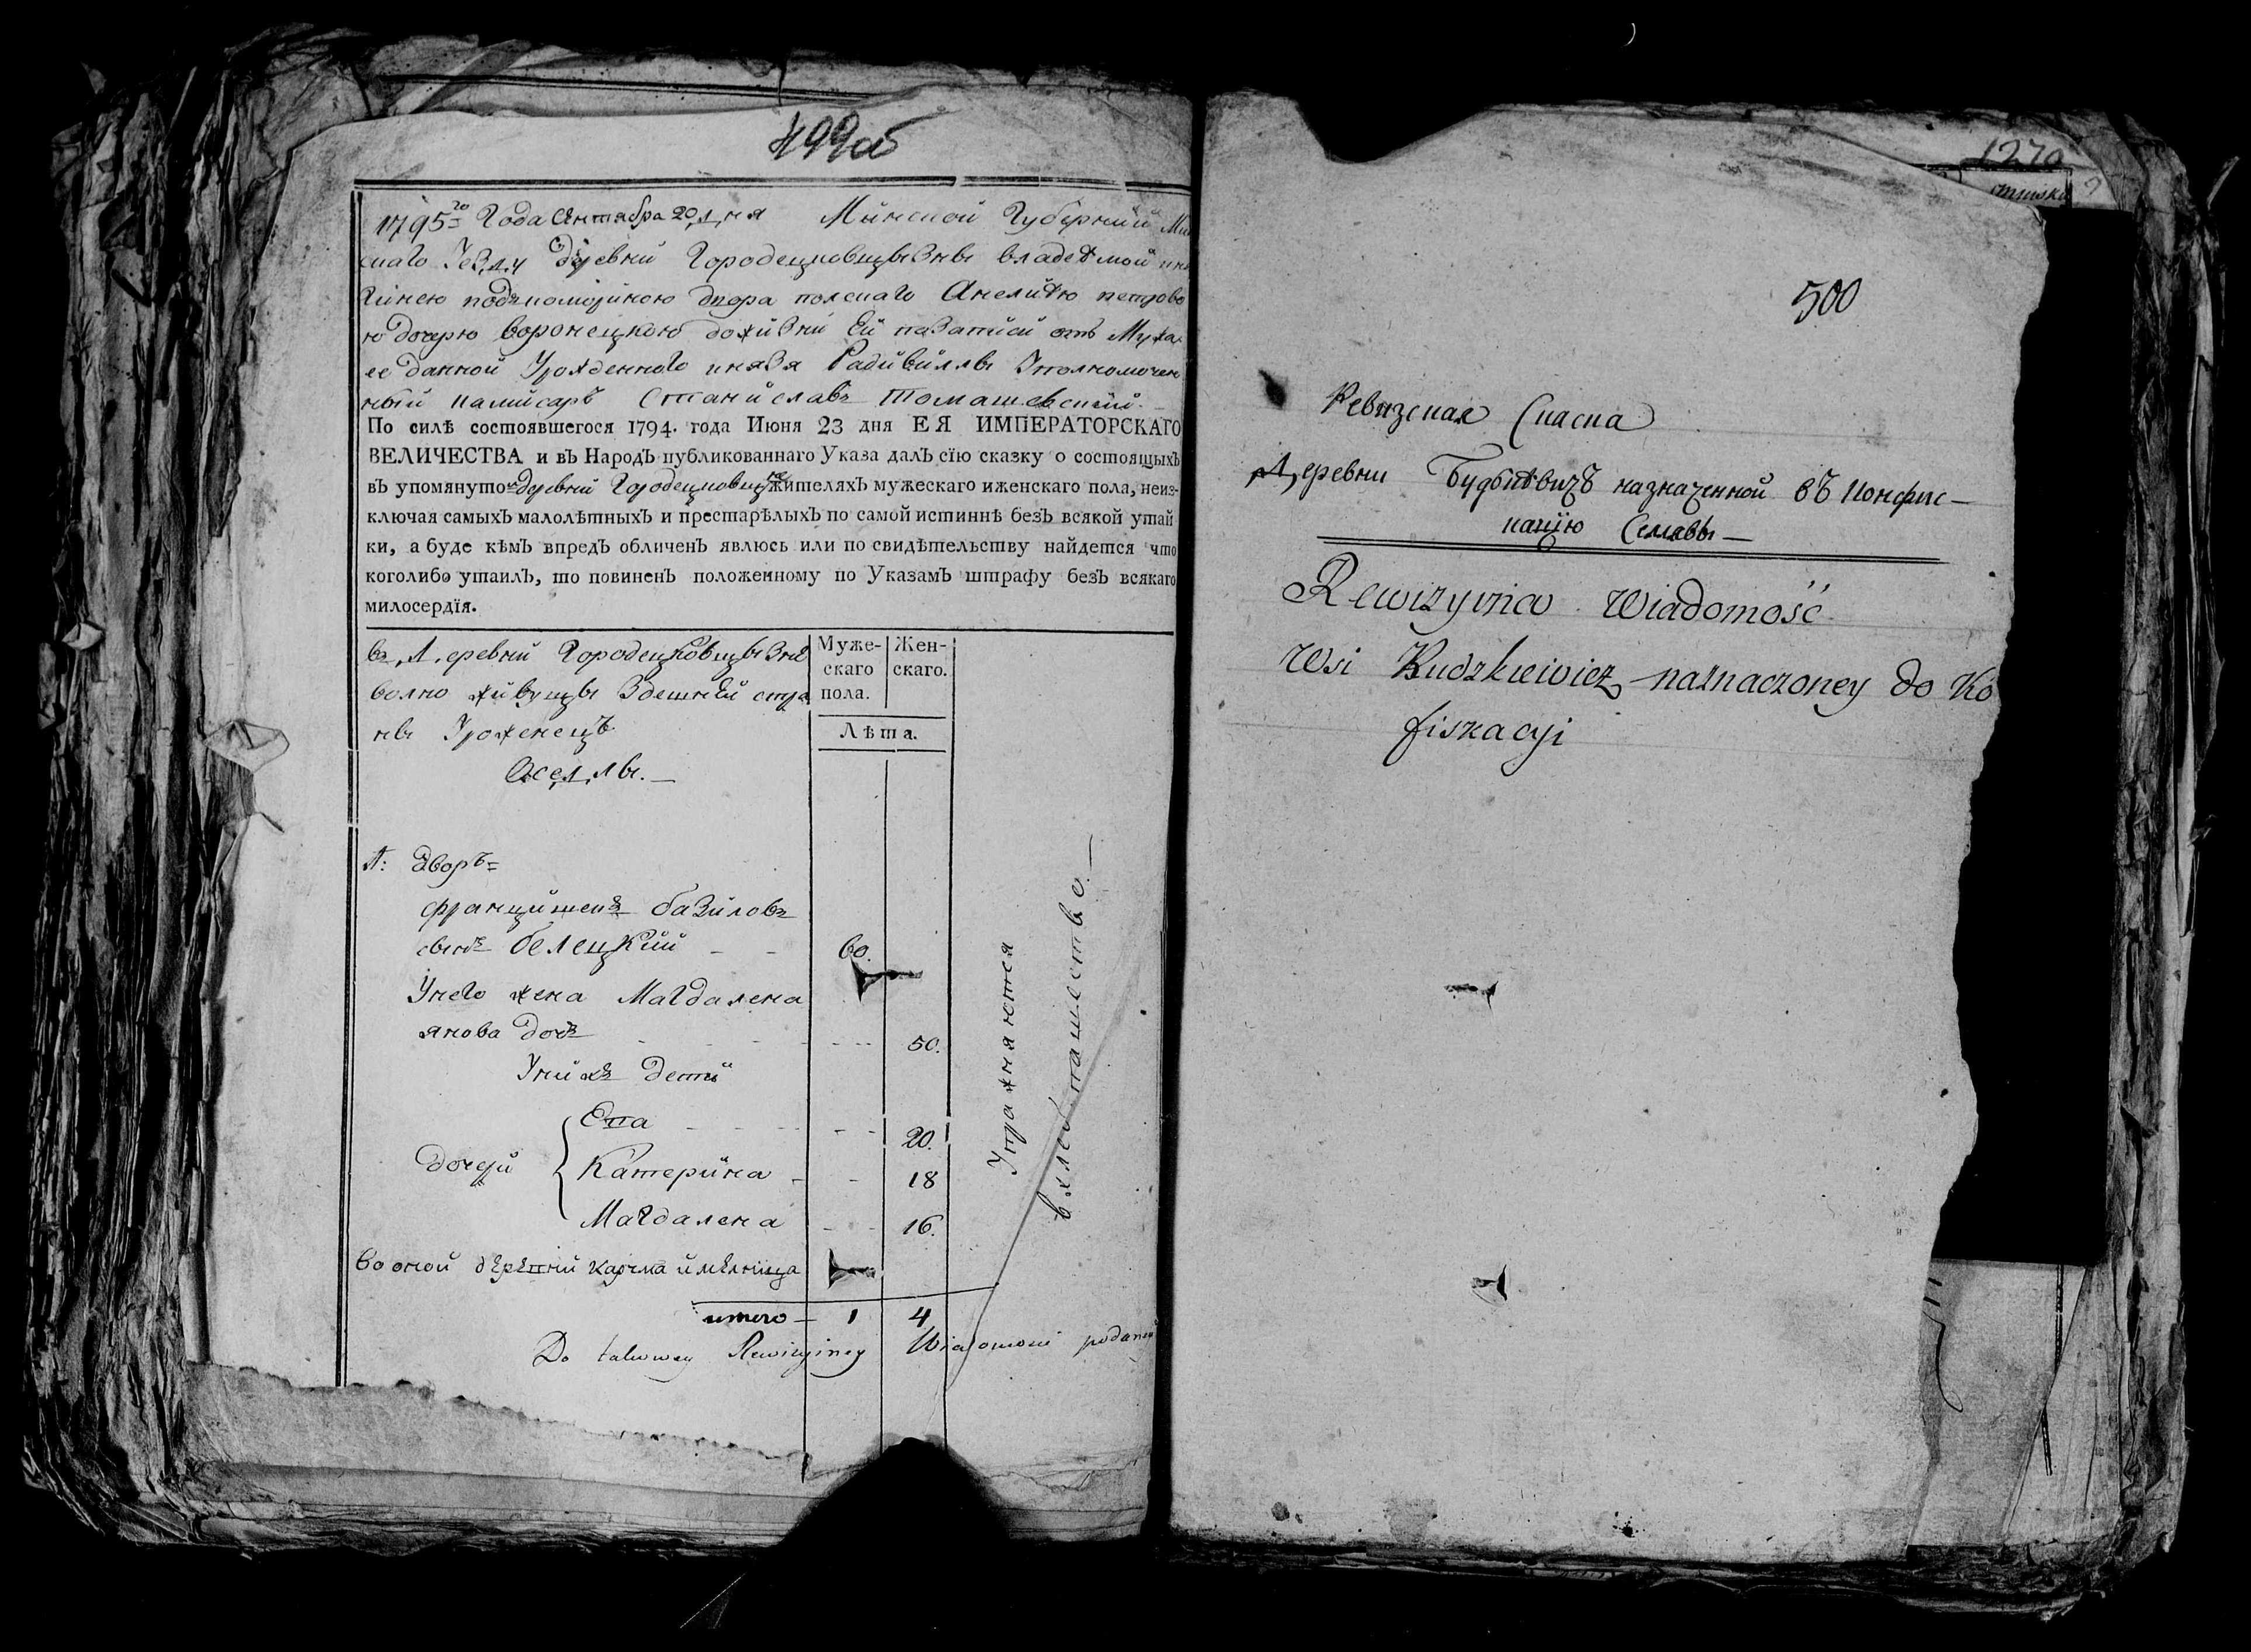 499об
1795го Года Сентября 20 дня Минской Губернии
скаго Уезду Деревни Городецковщызны владеемой
подкоморйною двора полскаго Анелиею петрово
ю дочерю Воронецкою дожизни Ей позаписи отъ Мужа
ее данной Урожденного князя Радивиллы Уполномочен
ный камисаръ Станиславъ Томашевский.
По силѣ состоявшегося 1794. года Июня 23 дня ЕЯ ИМПЕРАТОРСКАГО
ВЕЛИЧЕСТВА и въ Народъ публикованнаго Указа далъ сїю сказку о состоящыхъ
въ упомянутой деревни Городецковщызне жителяхъ мужескаго иженскаго пола, неиз-
ключая самыхъ малолѣтныхъ и престарѣлыхъ по самой истиннѣ безъ всякой утай
ки, а буде кѣмъ впредъ обличенъ явлюсь или по свидѣтельству найдется что
коголибо утаилъ, то повиненъ положенному по Указамъ штрафу безъ всякаго
милосердїя.
въ Деревни Городецковщызне
волно живущы Здешней стра
ны Уроженецъ
Оседлы.—
Муже-
скаго
пола.
Жен-
скаго.
Лѣта.
1: Дворъ=
францишекъ базиловъ
сынъ белецкий - - 60.
Унего жена Магдалена
янова дочъ - - - 50.
Унихъ дети
дочери
Ева - - - 20.
Катерина - - 18
Магдалена - - 16.
Во оной деревни карчма имелница
итого — 1 4
Do takowey Rewizyiney Wiadomosci podaney
Упражняются
вхлебопашестве.—
1270
500
Ревизская Скаска
Деревни Будькѣвичъ назначенной въ Конфис—
кацїю Селявы—
Rewizyina Wiadomość
Wsi Kudzkiewicz naznaczoney do Kó
fiskacyi